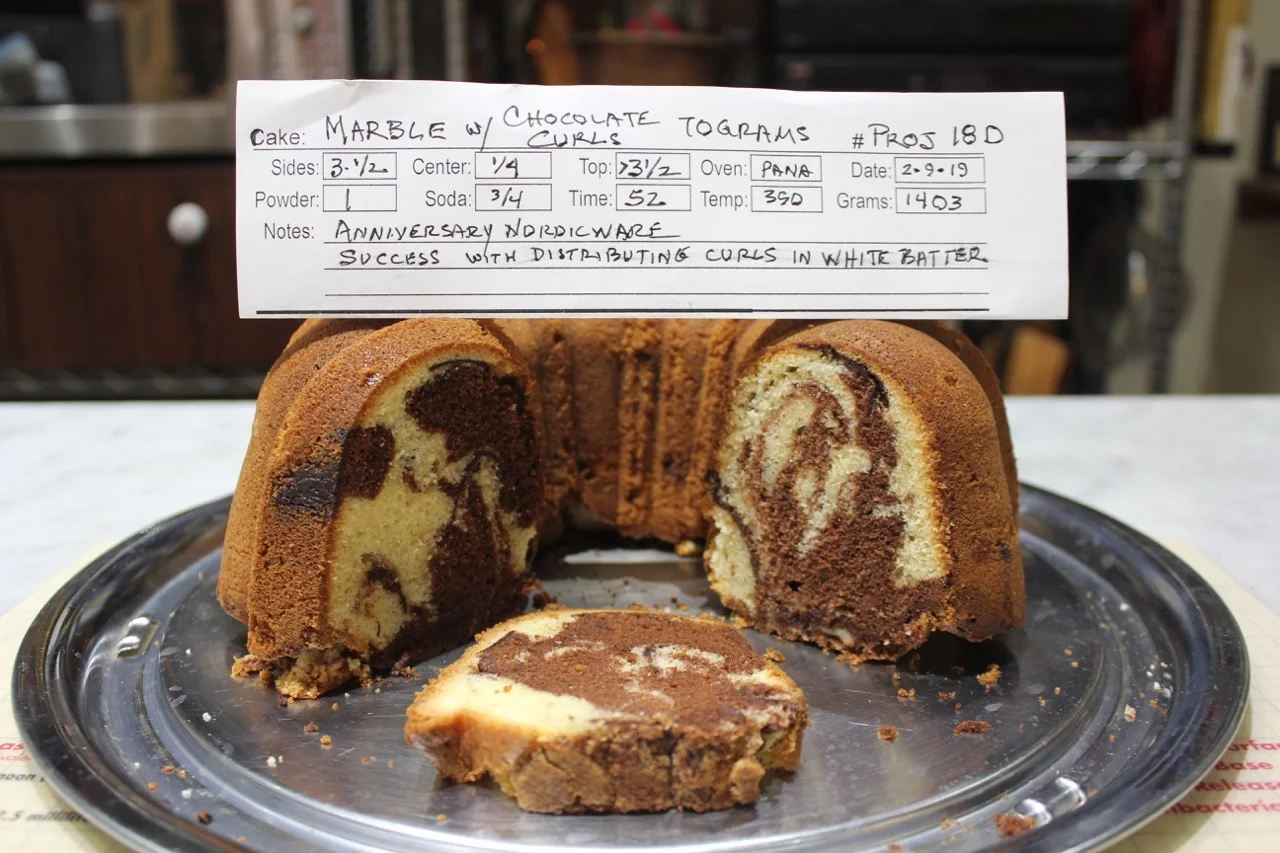 Cake: MARBLE W/ CHOCOLATE CURLS TOGRAMS # PROJ 18D
Sides: 3-1/2 Center: 1/4 Top: >31/2 Oven: PANA Date: 2-9-19
Powder: 1 Soda: 3/4 Time: 52 Temp: 350 Grams: 1403
Notes: ANNIVERSARY NORDICWARE
SUCCESS WITH DISTRIBUTING CURLS IN WHITE BATTER